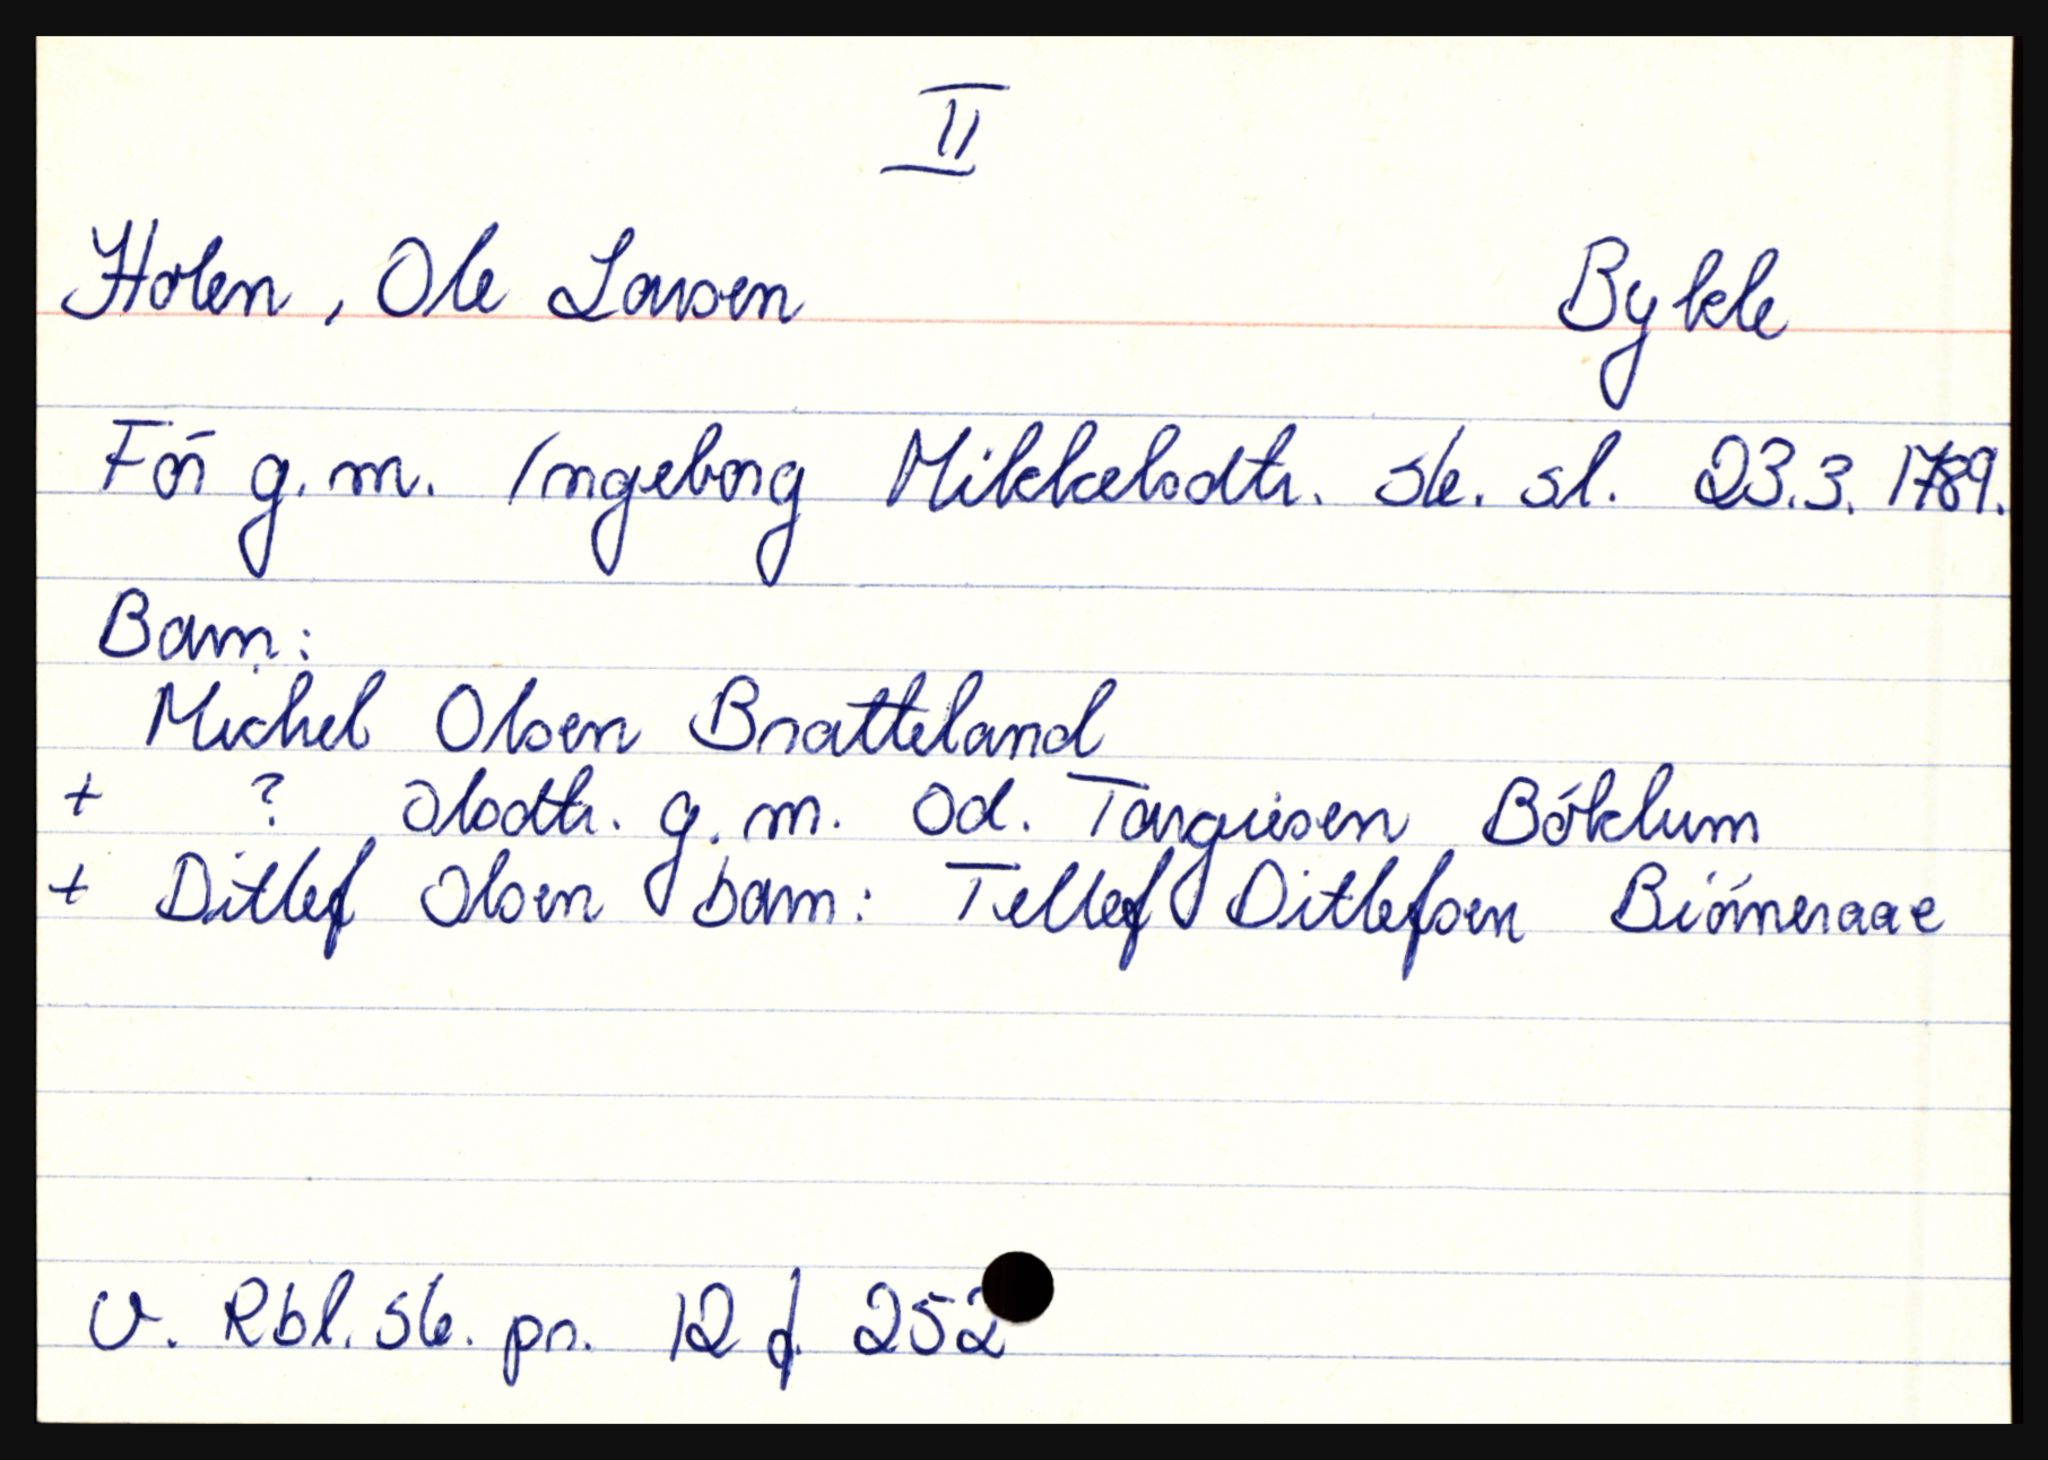 II
Holen, Ole Larsen Bykle
Før g. m. Ingeborg Mikkelsdtr. sk. sl. 23.3. 1789.
Barn:
Michel Olsen Bratteland
+ ? Olsdtr. g. m. Od. Targuisen Bóklum
+ Ditlef Olsen barn: Tellef Ditlefsen Biórneraae
V. Rbl. sk. pr. 12 f. 252